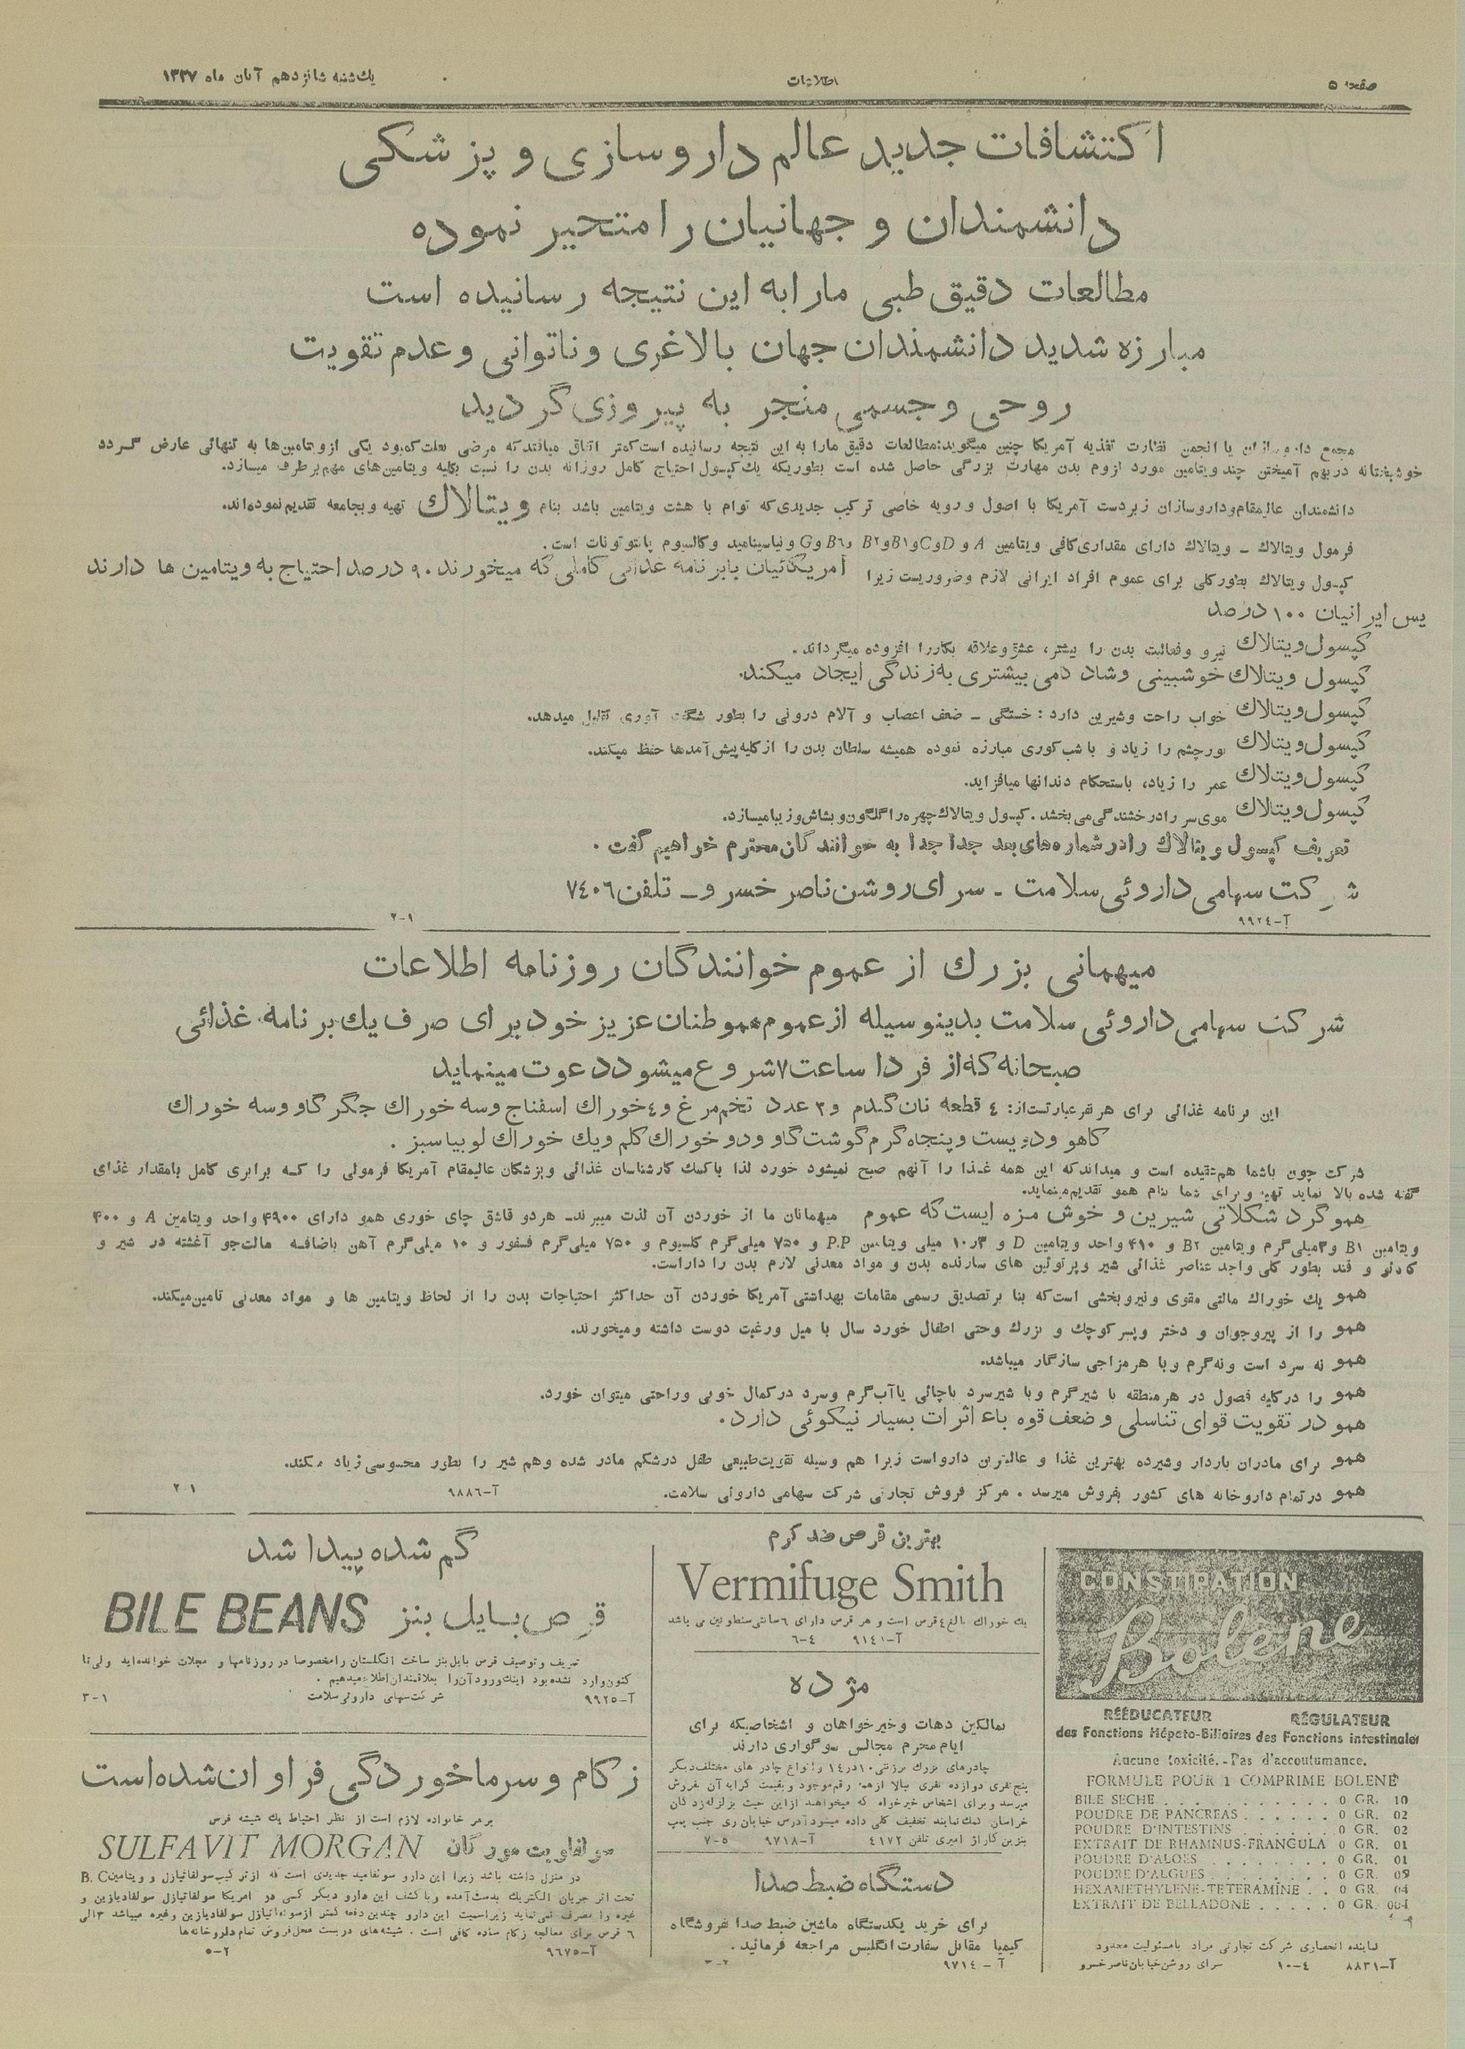 صفحه ۵
اطلاعات
یکشنبه شانزدهم آبان ماه ۱۳۲۷
اکتشافات جدید عالم داروسازی و پزشکی
دانشمندان و جهانیان را متحیر نموده
مطالعات دقیق طبی ما را به این نتیجه رسانیده است
مبارزه شدید دانشمندان جهان با لاغری و ناتوانی و عدم تقویت
روحی و جسمی منجر به پیروزی گردید
مجمع داروسازان یا انجمن نظارت تغذیه آمریکا چنین میگوید: مطالعات دقیق ما را به این نتیجه رسانیده است کمتر اتفاق میافتد که مرضی بعلت کمبود یکی از ویتامین‌ها به تنهائی عارض گردد
خوشبختانه در بهم آمیختن چند ویتامین مورد لزوم بدن مهارت بزرگی حاصل شده است بطوریکه یک کپسول احتیاج کامل روزانه بدن را نسبت بکلیه ویتامین‌های مهم برطرف میسازد.
دانشمندان عالیمقام و داروسازان زبردست آمریکا با اصول و رویه خاصی ترکیب جدیدی که توام با هشت ویتامین باشد بنام ویتالاک تهیه و بجامعه تقدیم نموده‌اند.
فرمول ویتالاک ــ ویتالاک دارای مقداری کافی ویتامین A و D و C و B۱ و B۲ و B٦ و G و نیاسینامید و کالسیوم پانتوتونات است.
کپسول ویتالاک بطور کلی برای عموم افراد ایرانی لازم و ضروریست زیرا آمریکائیان با برنامه غذائی کاملی که میخورند ۹۰ درصد احتیاج به ویتامین ها دارند
پس ایرانیان ۱۰۰ درصد
کپسول ویتالاک نیرو و فعالیت بدن را بیشتر، عشق و علاقه بکار را افزوده میگرداند.
کپسول ویتالاک خوشبینی و شاد دمی بیشتری به زندگی ایجاد میکند.
کپسول ویتالاک خواب راحت و شیرین دارد : خستگی ــ ضعف اعصاب و آلام درونی را بطور شگفت آوری تقلیل میدهد.
کپسول ویتالاک نور چشم را زیاد و با شب کوری مبارزه نموده همیشه سلطان بدن را از کلیه پیش آمدها حفظ میکند.
کپسول ویتالاک عمر را زیاد، باستحکام دندانها میافزاید.
کپسول ویتالاک موی سر را درخشندگی می بخشد. کپسول ویتالاک چهره را گلگون و بشاش و زیبا میسازد.
تعریف کپسول ویتالاک را در شماره‌های بعد جدا جدا به خوانندگان محترم خواهیم گفت .
شرکت سهامی داروئی سلامت ــ سرای روشن ناصر خسرو ــ تلفن ۷٤۰٦
آ-۹۹۲٤
۲-۱
میهمانی بزرك از عموم خوانندگان روزنامه اطلاعات
شرکت سهامی داروئی سلامت بدینوسیله از عموم هموطنان عزیز خود برای صرف یك برنامه غذائی
صبحانه که از فردا ساعت ۷ شروع میشود دعوت مینماید
این برنامه غذائی برای هر نفر عبارتست از: ٤ قطعه نان گندم و ۳ عدد تخم مرغ و ٤ خوراك اسفناج و سه خوراك جگر گاو و سه خوراك
کاهو و دویست و پنجاه گرم گوشت گاو و دو خوراك کلم و یك خوراك لوبیا سبز .
شرکت چون باشما هم عقیده است و میداند که این همه غذا را آنهم صبح نمیشود خورد لذا با کمك کارشناسان غذائی و پزشکان عالیمقام آمریکا فرمولی را که برابری کامل بامقدار غذای
گفته شده بالا نماید تهیه و برای شما بنام همو تقدیم مینماید.
همو گرد شکلاتی شیرین و خوش مزه ایست که عموم میهمانان ما از خوردن آن لذت میبرند ـ هر دو قاشق چای خوری همو دارای ۴۹۰۰ واحد ویتامین A و ۴۰۰
ویتامین B۱ و ۳ میلی گرم ویتامین B۲ و ۴۱۰ واحد ویتامین D و ۱۰٫۳ میلی ویتامین P.P و ۷۵۰ میلی گرم کلسیوم و ۷۵۰ میلی گرم فسفور و ۱۰ میلی گرم آهن باضافه مالت جو آغشته در شیر و
کاکائو و قند بطور کلی واجد عناصر غذائی شیر و پرتوئین های سازنده بدن و مواد معدنی لازم بدن را داراست.
همو یك خوراك مالتی مقوی و نیروبخشی است که بنا بر تصدیق رسمی مقامات بهداشتی آمریکا خوردن آن حداکثر احتیاجات بدن را از لحاظ ویتامین ها و مواد معدنی تامین میکند.
همو را از پیر و جوان و دختر و پسر کوچك و بزرك وحتی اطفال خورد سال با میل و رغبت دوست داشته و میخورند.
همو نه سرد است و نه گرم و با هر مزاجی سازگار میباشد.
همو را در کلیه فصول در هر منطقه با شیر گرم و با شیر سرد یا چائی یا آب گرم و سرد در کمال خوبی و راحتی میتوان خورد.
همو در تقویت قوای تناسلی و ضعف قوه باء اثرات بسیار نیکوئی دارد.
همو برای مادران باردار و شیرده بهترین غذا و عالیترین دارواست زیرا هم وسیله تقویت طبیعی طفل در شکم مادر شده و هم شیر را بطور محسوسی زیاد میکند.
همو در تمام داروخانه های کشور بفروش میرسد . مرکز فروش تجارتی شرکت سهامی داروئی سلامت.
آ-۹۸۸٦
۲-۱
CONSTIPATION
Bolene
RÉÉDUCATEUR RÉGULATEUR
des Fonctions Hépato-Biliaires des Fonctions intestinales
Aucune toxicité. - Pas d'accoutumance.
FORMULE POUR 1 COMPRIME BOLENE
BILE SECHE . . . . . . . 0 GR. 10
POUDRE DE PANCREAS . . . . . 0 GR. 02
POUDRE D'INTESTINS . . . . . 0 GR. 02
EXTRAIT DE RHAMNUS-FRANGULA 0 GR. 01
POUDRE D'ALOES . . . . . . 0 GR. 01
POUDRE D'ALGUES . . . . . . 0 GR. 05
HEXAMETHYLENE-TETERAMINE . . 0 GR. 04
EXTRAIT DE BELLADONE . . . . . 0 GR. 004
نماینده انحصاری شرکت تجارتی مراد بامسئولیت محدود
آ-۸۸۳۱ ۱۰-٤ سرای روشن خیابان ناصر خسرو
بهترین قرص ضد کرم
Vermifuge Smith
یك خوراك بالغ ٤ قرص است و هر قرص دارای ٦ سانتی سنطونین می باشد
آ-۹۱٤۱ ٦-٤
مژده
بمالکین دهات و خیرخواهان و اشخاصیکه برای
ایام محرم مجالس سوگواری دارند
چادرهای بزرك برزنتی ۱۰ در ۱٤ و انواع چادر های مختلف دیگر
پنج نفری دوازده نفری ببالا از همه رقم موجود و بقیمت کرایه آن بفروش
میرسد و برای اشخاص خیرخواه که میخواهند از این حیث بزلزله زدگان
خراسان کمك نمایند تخفیف کلی داده میشود آدرس خیابان ری جنب پمپ
بنزین کاراژ امیری تلفن ٤۱۷۲ آ-۹۷۱۸ ۷-۵
دستگاه ضبط صدا
برای خرید یکدستگاه ماشین ضبط صدا بفروشگاه
کیمیا مقابل سفارت انگلیس مراجعه فرمائید.
آ - ۹۷۱٤ ۳-۲
گم شده پیدا شد
قرص بایل بنز BILE BEANS
تعریف و توصیف قرص بایل بنز ساخت انگلستان را مخصوصا در روزنامها و مجلات خوانده‌اید ولی تا
کنون وارد نشده بود اینك ورود آن را بعلاقمندان اطلاع میدهیم .
آ-۹۹۲۵ شرکت سهامی داروئی سلامت ۳-۱
زکام و سرماخوردگی فراوان شده است
بر هر خانواده لازم است از نظر احتیاط یك شیشه قرص
سولفاویت مورگان SULFAVIT MORGAN
در منزل داشته باشد زیرا این دارو سولفامید جدیدی است که از ترکیب سولفاتیازل و ویتامین B. C
تحت اثر جریان الکتریك بدست آمده و با کشف این دارو دیگر کسی در امریکا سولفاتیازل سولفادیازین و
غیره را مصرف نمی نماید زیرا سمیت این دارو چندین دفعه کمتر از سولفاتیازل سولفادیازین وغیره میباشد ۳ الی
٦ قرص برای معالجه زکام ساده کافی است . شیشه‌های دربست محل فروش تمام داروخانه‌ها
آ-۹٦۷۵ ۵-۲